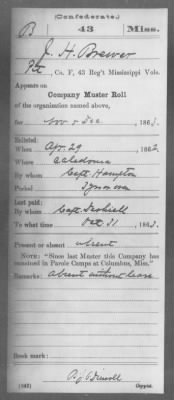 (Confederate.)
B 43 Miss.
J. H. Brewer
Pvt, Co. F, 43 Reg't Mississippi Vols.
Appears on
Company Muster Roll
of the organization named above,
for Nov & Dec, 1863.
Enlisted:
When Apr. 29, 1862.
Where Caledonia
By whom Capt Hampton
Period
Last paid:
By whom Capt.
To what time Oct 31, 1863.
Present or absent absent
NOTE: "Since last Muster this Company has
remained in Parole Camps at Columbus, Miss."
Remarks: Absent without leave
Book mark:
(642)
Copyist.